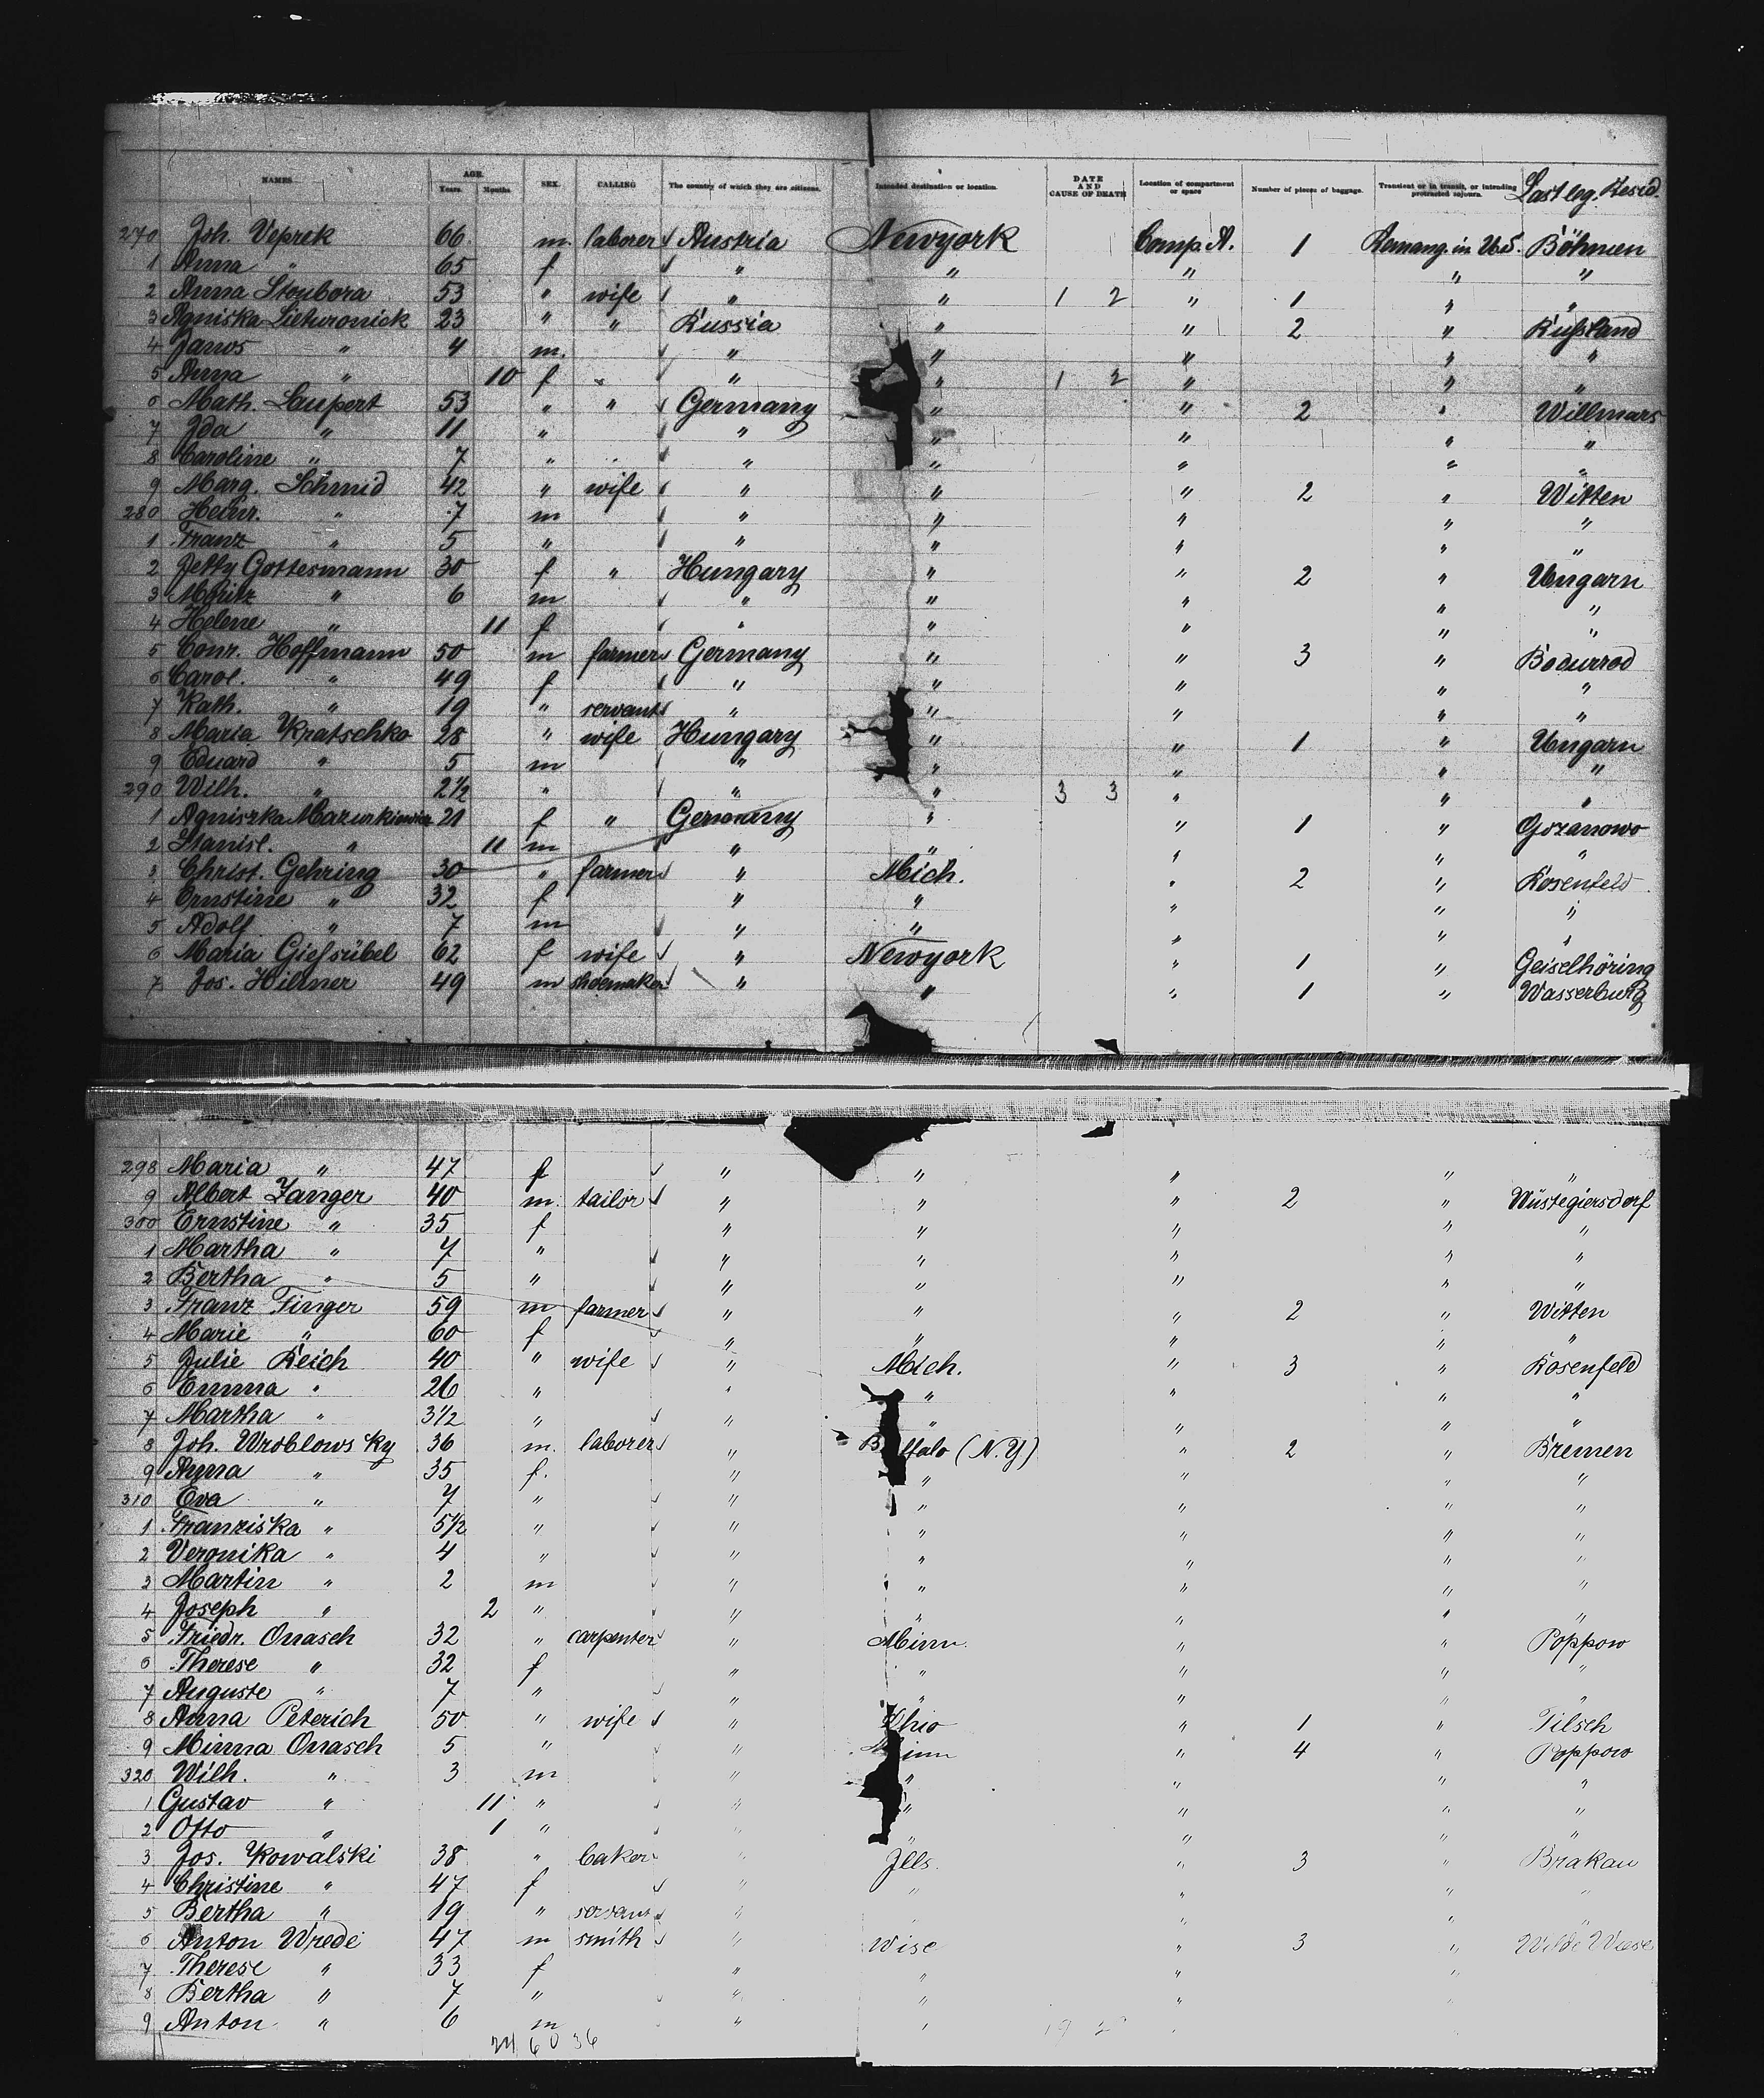 NAMES. AGE. Years. Months. SEX. CALLING The country of which they are citizens. Intended destination or location. DATE AND CAUSE OF DEATH Location of compartment or space Number of pieces of baggage. Transient or in transit, or intending protracted sojourn. Last leg. Resid.
270 Joh. Veprek 66 m. laborer Austria Newyork Comp. A. 1 Böhmen
1 Anna " 65 f " " " " "
2 Anna Stoubora 53 " wife " " 1 2 " 1 " "
3 Agniska 23 " " Russia " " 2 " Rußland
4 Janos " 4 m. " " " " "
5 Anna " 10 f " " 1 2 " " "
6 Math. Laupert 53 " " Germany " " 2 " Willmars
7 Ida " 11 " " " " " "
8 Caroline " 7 " " " " " "
9 Marg. Schmid 42 " wife " " " 2 " Witten
280 Heinr. " 7 m " " " " "
1 Franz " 5 " " " " " "
2 Jetty Gottesmann 30 f " Hungary " " 2 " Ungarn
3 Moritz " 6 m " " " " "
4 Helene " 11 f " " " " "
5 Conr. Hoffmann 50 m farmer Germany " " 3 "
6 Carol. " 49 f " " " " "
7 Kath. " 19 " servant " " " " "
8 Maria Kratschko 28 " wife Hungary " " 1 " Ungarn
9 Eduard " 5 m " " " " "
290 Wilh. " 2 1/2 " " " 3 3 " " "
1 Agniszka Mazurkiewicz 21 f " Germany " " 1 "
2 Stanisl. " 11 m " " " " "
3 Christ. Gehring 30 " farmer " Mich. " 2 " Rosenfeld
4 Ernstine " 32 f " " " " "
5 Adolf " 7 m " " " " "
6 Maria Gießübel 62 f wife " Newyork " 1 " Geiselhöring
7 Jos. Hilmer 49 m shoemaker " " " 1 " Wasserburg
298 Maria " 47 f " " " " "
9 Albert Zanger 40 m. tailor " " " 2 " Wüstegiersdorf
300 Ernstine " 35 f " " " " "
1 Martha " 7 " " " " " "
2 Bertha " 5 " " " " " "
3 Franz Finger 59 m farmer " " " 2 " Witten
4 Marie " 60 f " " " " "
5 Julie Reich 40 " wife " Mich. " 3 " Rosenfeld
6 Emma " 26 " " " " " "
7 Martha " 3 1/2 " " " " " "
8 Joh. Wroblowsky 36 m. laborer " B ffalo (N.Y) " 2 " Bremen
9 Anna " 35 f. " " " " "
310 Eva " 7 " " " " " "
1 Franziska " 5 1/2 " " " " " "
2 Veronika " 4 " " " " " "
3 Martin " 2 m " " " " "
4 Joseph " 2 " " " " " "
5 Friedr. Onasch 32 " carpenter " Minn. " " Poppow
6 Therese " 32 f " " " " "
7 Auguste " 7 " " " " " "
8 Anna Peterich 50 " wife " Ohio " 1 " Tilsch
9 Minna Onasch 5 " " inn " 4 " Poppow
320 Wilh. " 3 m " " " " "
1 Gustav " 11 " " " " " "
2 Otto " 1 " " " " " "
3 Jos. Kowalski 38 " baker " Ills. " 3 " Brakau
4 Christine " 47 f " " " " "
5 Bertha " 19 " servant " " " " "
6 Anton Wrede 47 m smith " Wisc " 3 "
7 Therese " 33 f " " " "
8 Bertha " 7 " " " "
9 Anton " 6 m " "